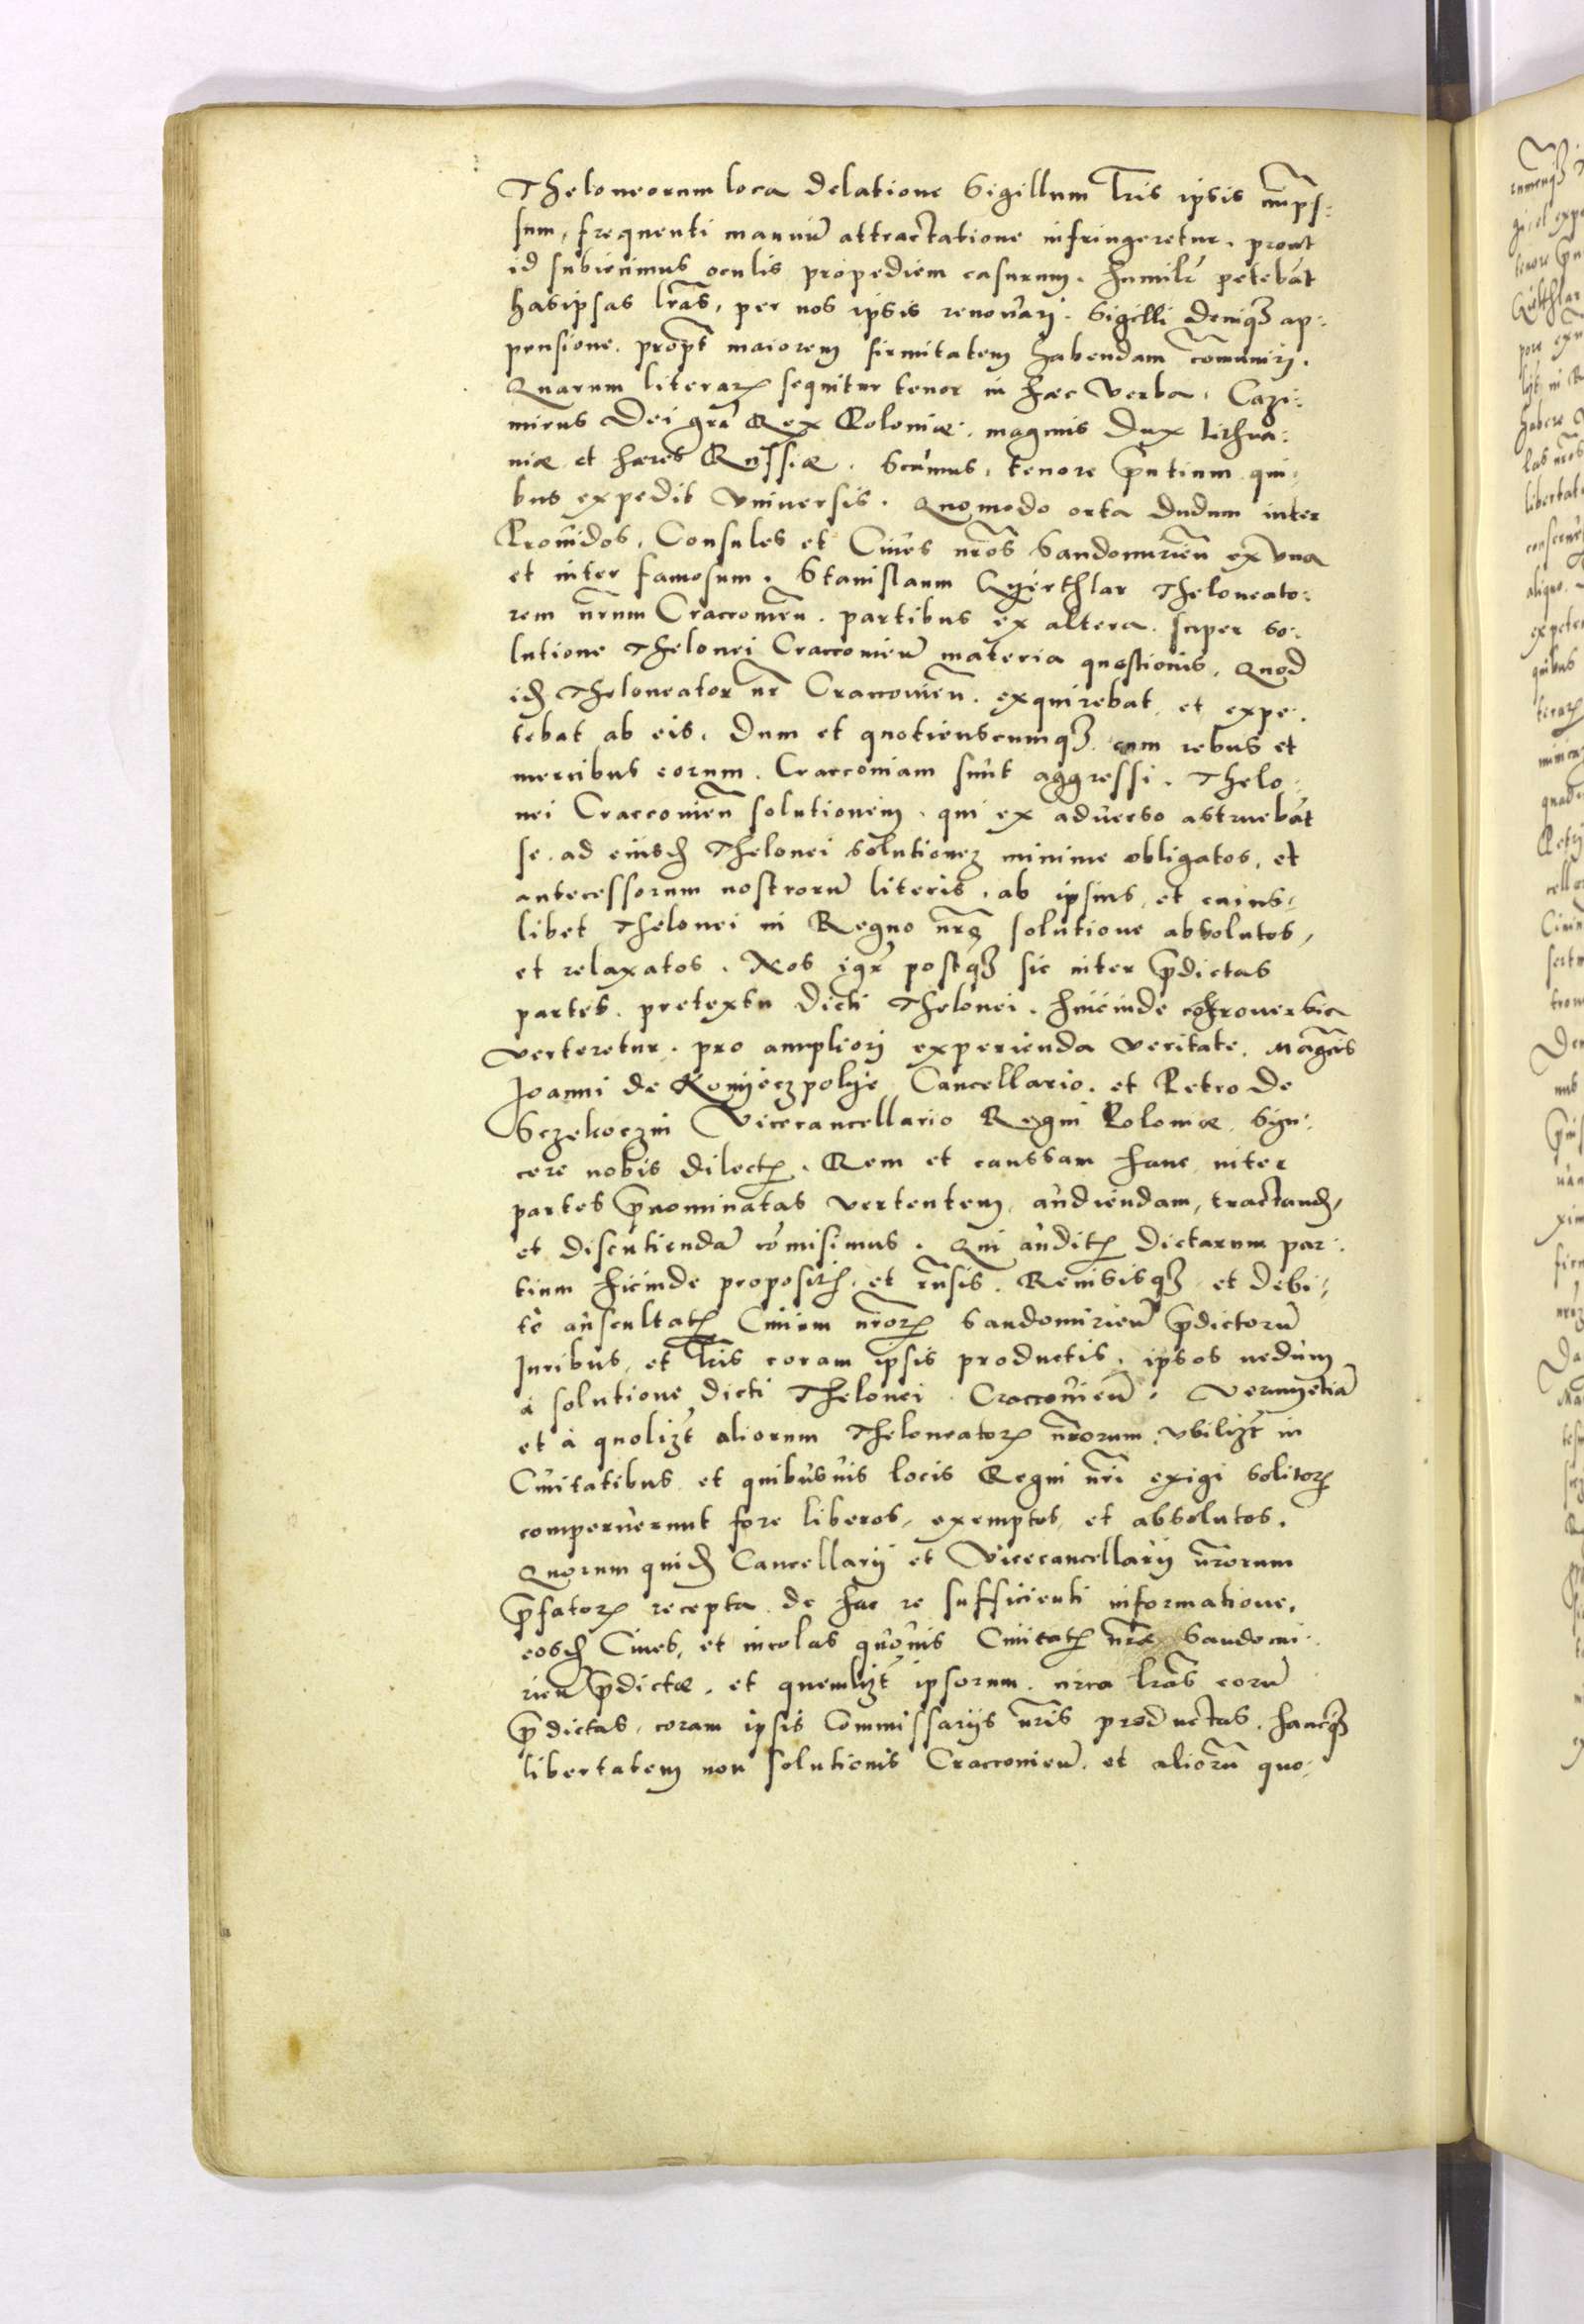 Theloneorum loca delatione Sigillum lr̃is ipsis imp̃s:
sum, frequenti manuũ attractatione infringeretur. prout
id subiecimus oculis propediem casurum. humilr̃ petebãt
hasipsas lr̃as, per nos ipsis renouarj. Sigilli deniqȝ ap:
pensione. propt̃ maiorem firmitatem habendam com̃unirj.
Quarum literarꝝ sequitur tenor in hæc verba. Cazi:
mirus Dei gr̃a Rex Poloniæ. magnus Dux lithua:
niæ et hæres Russiæ. Scimus, tenore p̃ntium qui:
bus expedit vniuersis. Quomodo orta dudum inter
Prouidos, Consules et Ciues nr̃os Sandomirieñ ex vna
et inter famosum. Stanislaum Gyerthlar Theloneato:
rem nr̃um Craccouieñ. partibus ex altera. super so:
lutione Thelonei Craccouieñ materia quæstionis, Quod
id̃ Theloneator nr̃ Craccouieñ. exquirebat et expe:
tebat ab eis. Dum et quotienscumqȝ cum rebus et
mercibus eorum. Cracconiam sunt aggressi. Thelo:
nei Craccouieñ solutionem. qui ex aduerso astruebãt
se. ad eiusd̃ Thelonei solutionem minime obligatos, et
antecessorum nostrorũ literis. ab ipsius et cuius:
libet Thelonei in Regno nr̃o solutione absolutos,
et relaxatos. Nos igr̃ postqȝ sic inter p̃dictas
partes. pretextu dicti Thelonei. hincinde controuersia
verteretur. pro ampliorj experienda veritate. Mag̃cis
Joanni de Konyeczpolye Cancellario. et Petro de
Sczekoczin Vicecancellario Regni Poloniæ Syn:
cere nobis dilectꝭ. Rem et caussam hanc inter
partes p̃nominatas vertentem audiendam, tractand̃,
et discutiendã com̃isimus. Qui auditꝭ dictarum par:
tium hicinde propositꝭ et rñsis. Reuisisqȝ et debi:
te auscultatꝭ Ciuium nr̃orꝝ Sandomirieñ p̃dictorũ
Juribus, et lr̃is coram ipsis productis. ipsos nedum
à solutione dicti Thelonei Craccouieñ. Verumetiã
et à quolizt̃ aliorum Theloneatorꝝ nr̃orum vbilizt̃ in
Ciuitatibus et quibusuis locis Regni nr̃i exigi solitorꝝ
comperuerunt fore liberos, exemptos et absolutos.
Quorum quid̃ Cancellarij et Vicecancellarij nr̃orum
p̃fatorꝝ recepta de hac re sufficienti informatione,
eosd̃ Ciues, et incolas quouis Ciuitatꝭ nr̃æ Sandomi:
rieñ p̃dictæ, et quemlizt̃ ipsorum. circa lr̃as eorũ
p̃dictas, coram ipsis Commissarijs nr̃is productas. hancqȝ
libertatem non solutionis Craccouieñ. et aliorũ quo: